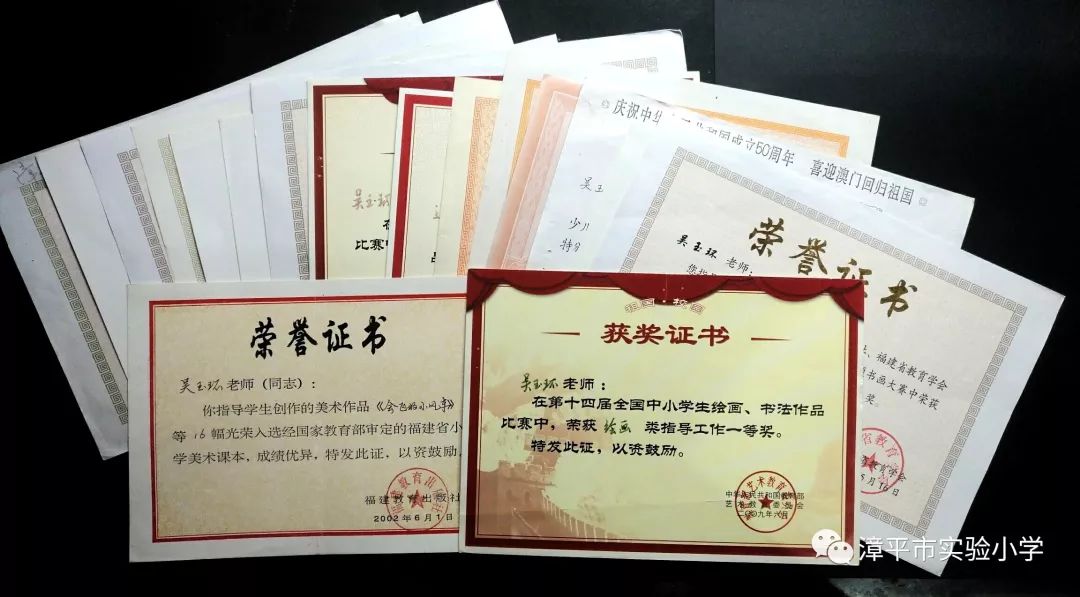 庆祝中华 国成立50周年 喜迎澳门回归祖国
荣誉证书
吴玉环 老师:
福建省教育学会
书画大赛中荣获
奖。
教育学会
月16日
吴玉
少
特
吴玉环
比赛中
荣誉证书
吴玉环老师(同志):
你指导学生创作的美术作品《会飞的小风亭》
等16幅光荣入选经国家教育部审定的福建省小
学美术课本,成绩优异,特发此证,以资鼓励。
福建教育出版社
2002年6月1
祖国·校园
获奖证书
吴玉环老师:
在第十四届全国中小学生绘画、书法作品
比赛中,荣获 绘画 类指导工作一等奖。
特发此证,以资鼓励。
中华人民共和国教育部
艺术教育委员会
二〇〇九年六月
漳平市实验小学